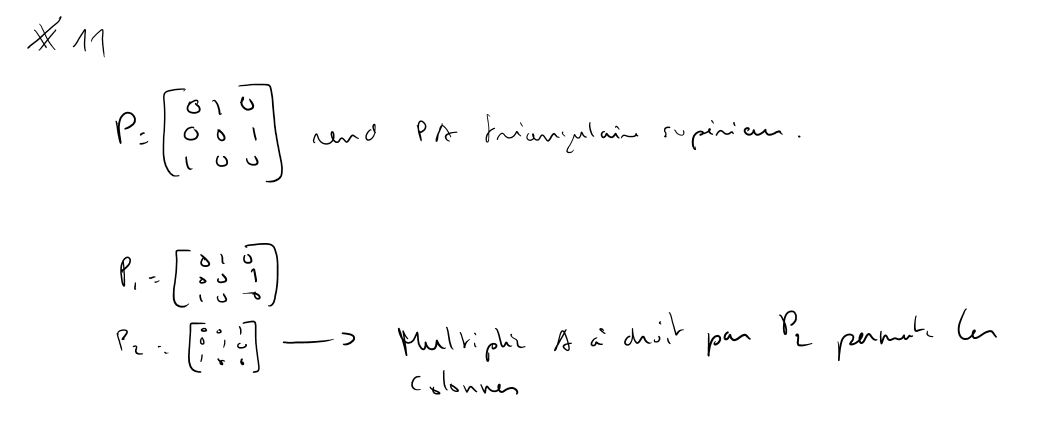 # 11
P = [0 1 0
0 0 1
1 0 0] rend PA triangulaire supérieur.
P₁ = [0 1 0
0 0 1
1 0 0]
P₂ = [0 0 1
0 1 0
1 0 0] → Multiplie A à droit par P₂ permute les
colonnes